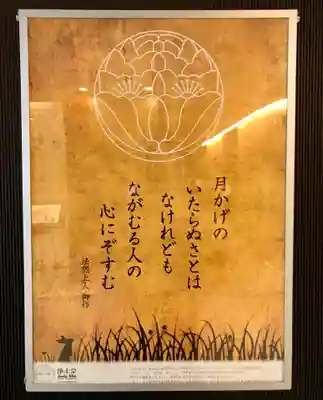 月かげの
いたらぬさとは
なけれども
ながむる人の
心にぞすむ
法然上人 御作
浄土宗